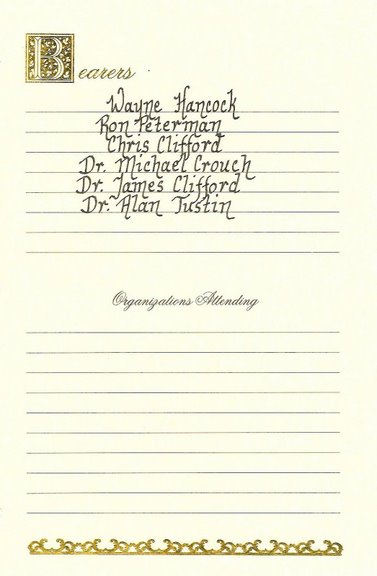 Bearers
Wayne Hancock
Ron Peterman
Chris Clifford
Dr. Michael Crouch
Dr. James Clifford
Dr. Alan Tustin
Organizations Attending